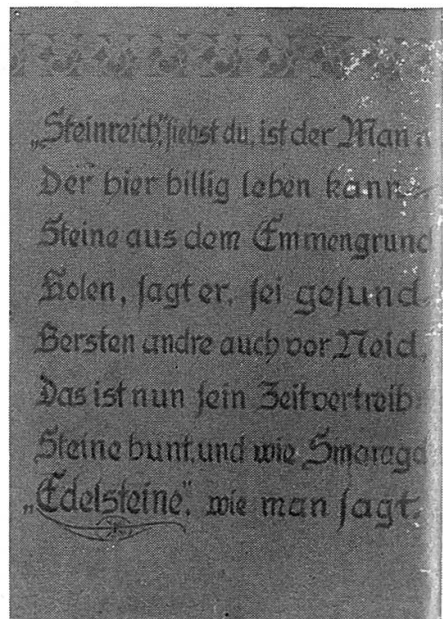 „Steinreich“, siehst du, ist der Mann
Der hier billig leben kann.
Steine aus dem Emmengrund
Holen, sagt er, sei gesund.
Bersten andre auch vor Neid,
Das ist nun sein Zeitvertreib.
Steine bunt und wie Smaragd
„Edelsteine“, wie man sagt.